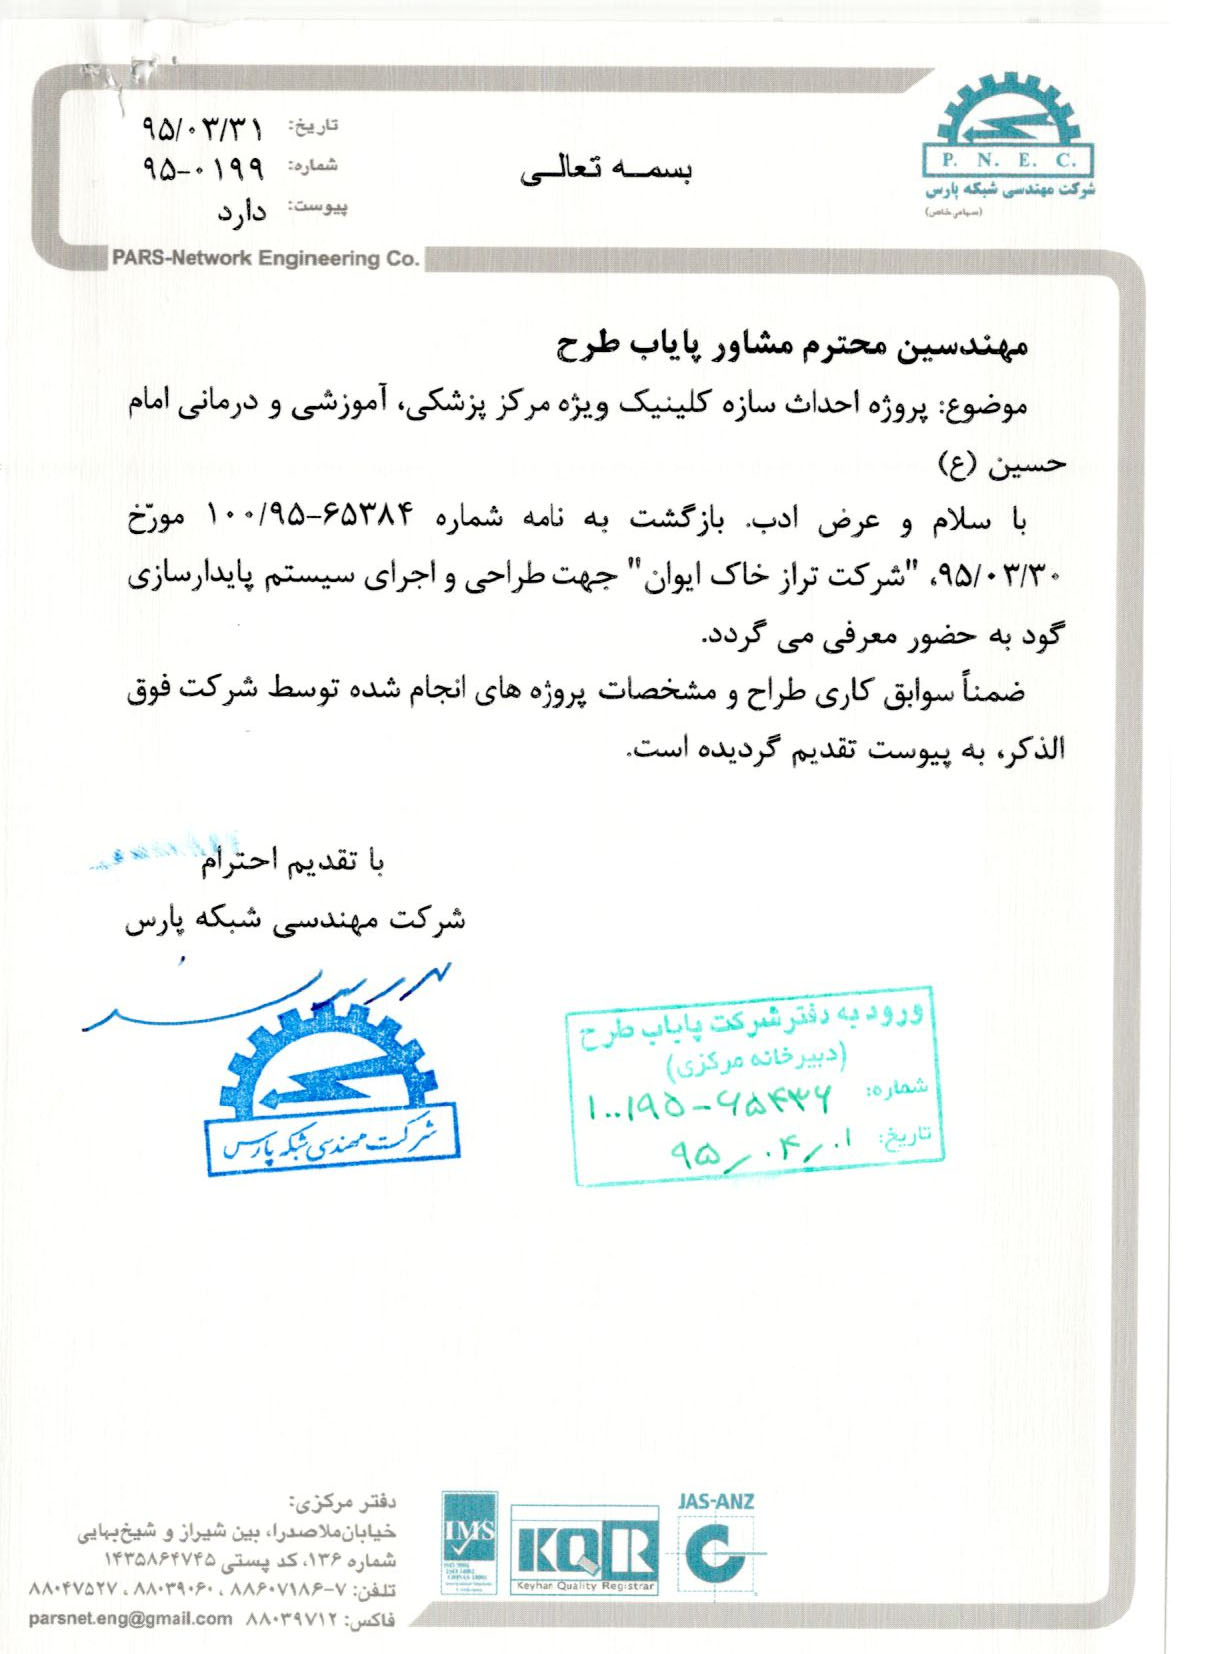 تاریخ: ۹۵/۰۳/۳۱
شماره: ۹۵-۰۱۹۹
پیوست: دارد
بسمه تعالی
P. N. E. C.
شرکت مهندسی شبکه پارس
(سهامی خاص)
PARS-Network Engineering Co.
مهندسین محترم مشاور پایاب طرح
موضوع: پروژه احداث سازه کلینیک ویژه مرکز پزشکی، آموزشی و درمانی امام
حسین (ع)
با سلام و عرض ادب. بازگشت به نامه شماره ۶۵۳۸۴-۱۰۰/۹۵ مورّخ
۹۵/۰۳/۳۰، "شرکت تراز خاک ایوان" جهت طراحی و اجرای سیستم پایدارسازی
گود به حضور معرفی می گردد.
ضمناً سوابق کاری طراح و مشخصات پروژه های انجام شده توسط شرکت فوق
الذکر، به پیوست تقدیم گردیده است.
با تقدیم احترام
شرکت مهندسی شبکه پارس
شرکت مهندسی شبکه پارس
ورود به دفتر شرکت پایاب طرح
(دبیرخانه مرکزی)
شماره: ۱۰۰/۹۵-۶۵۴۳۶
تاریخ: ۹۵/۰۴/۰۱
دفتر مرکزی:
خیابان ملاصدرا، بین شیراز و شیخ بهایی
شماره ۱۳۶، کد پستی ۱۴۳۵۸۶۴۷۴۵
تلفن: ۷-۸۸۶۰۷۱۸۶ ، ۸۸۰۳۹۰۶۰ ، ۸۸۰۴۷۵۲۷
فاکس: ۸۸۰۳۹۷۱۲ parsnet.eng@gmail.com
IMS
KQR
Keyhan Quality Registrar
JAS-ANZ